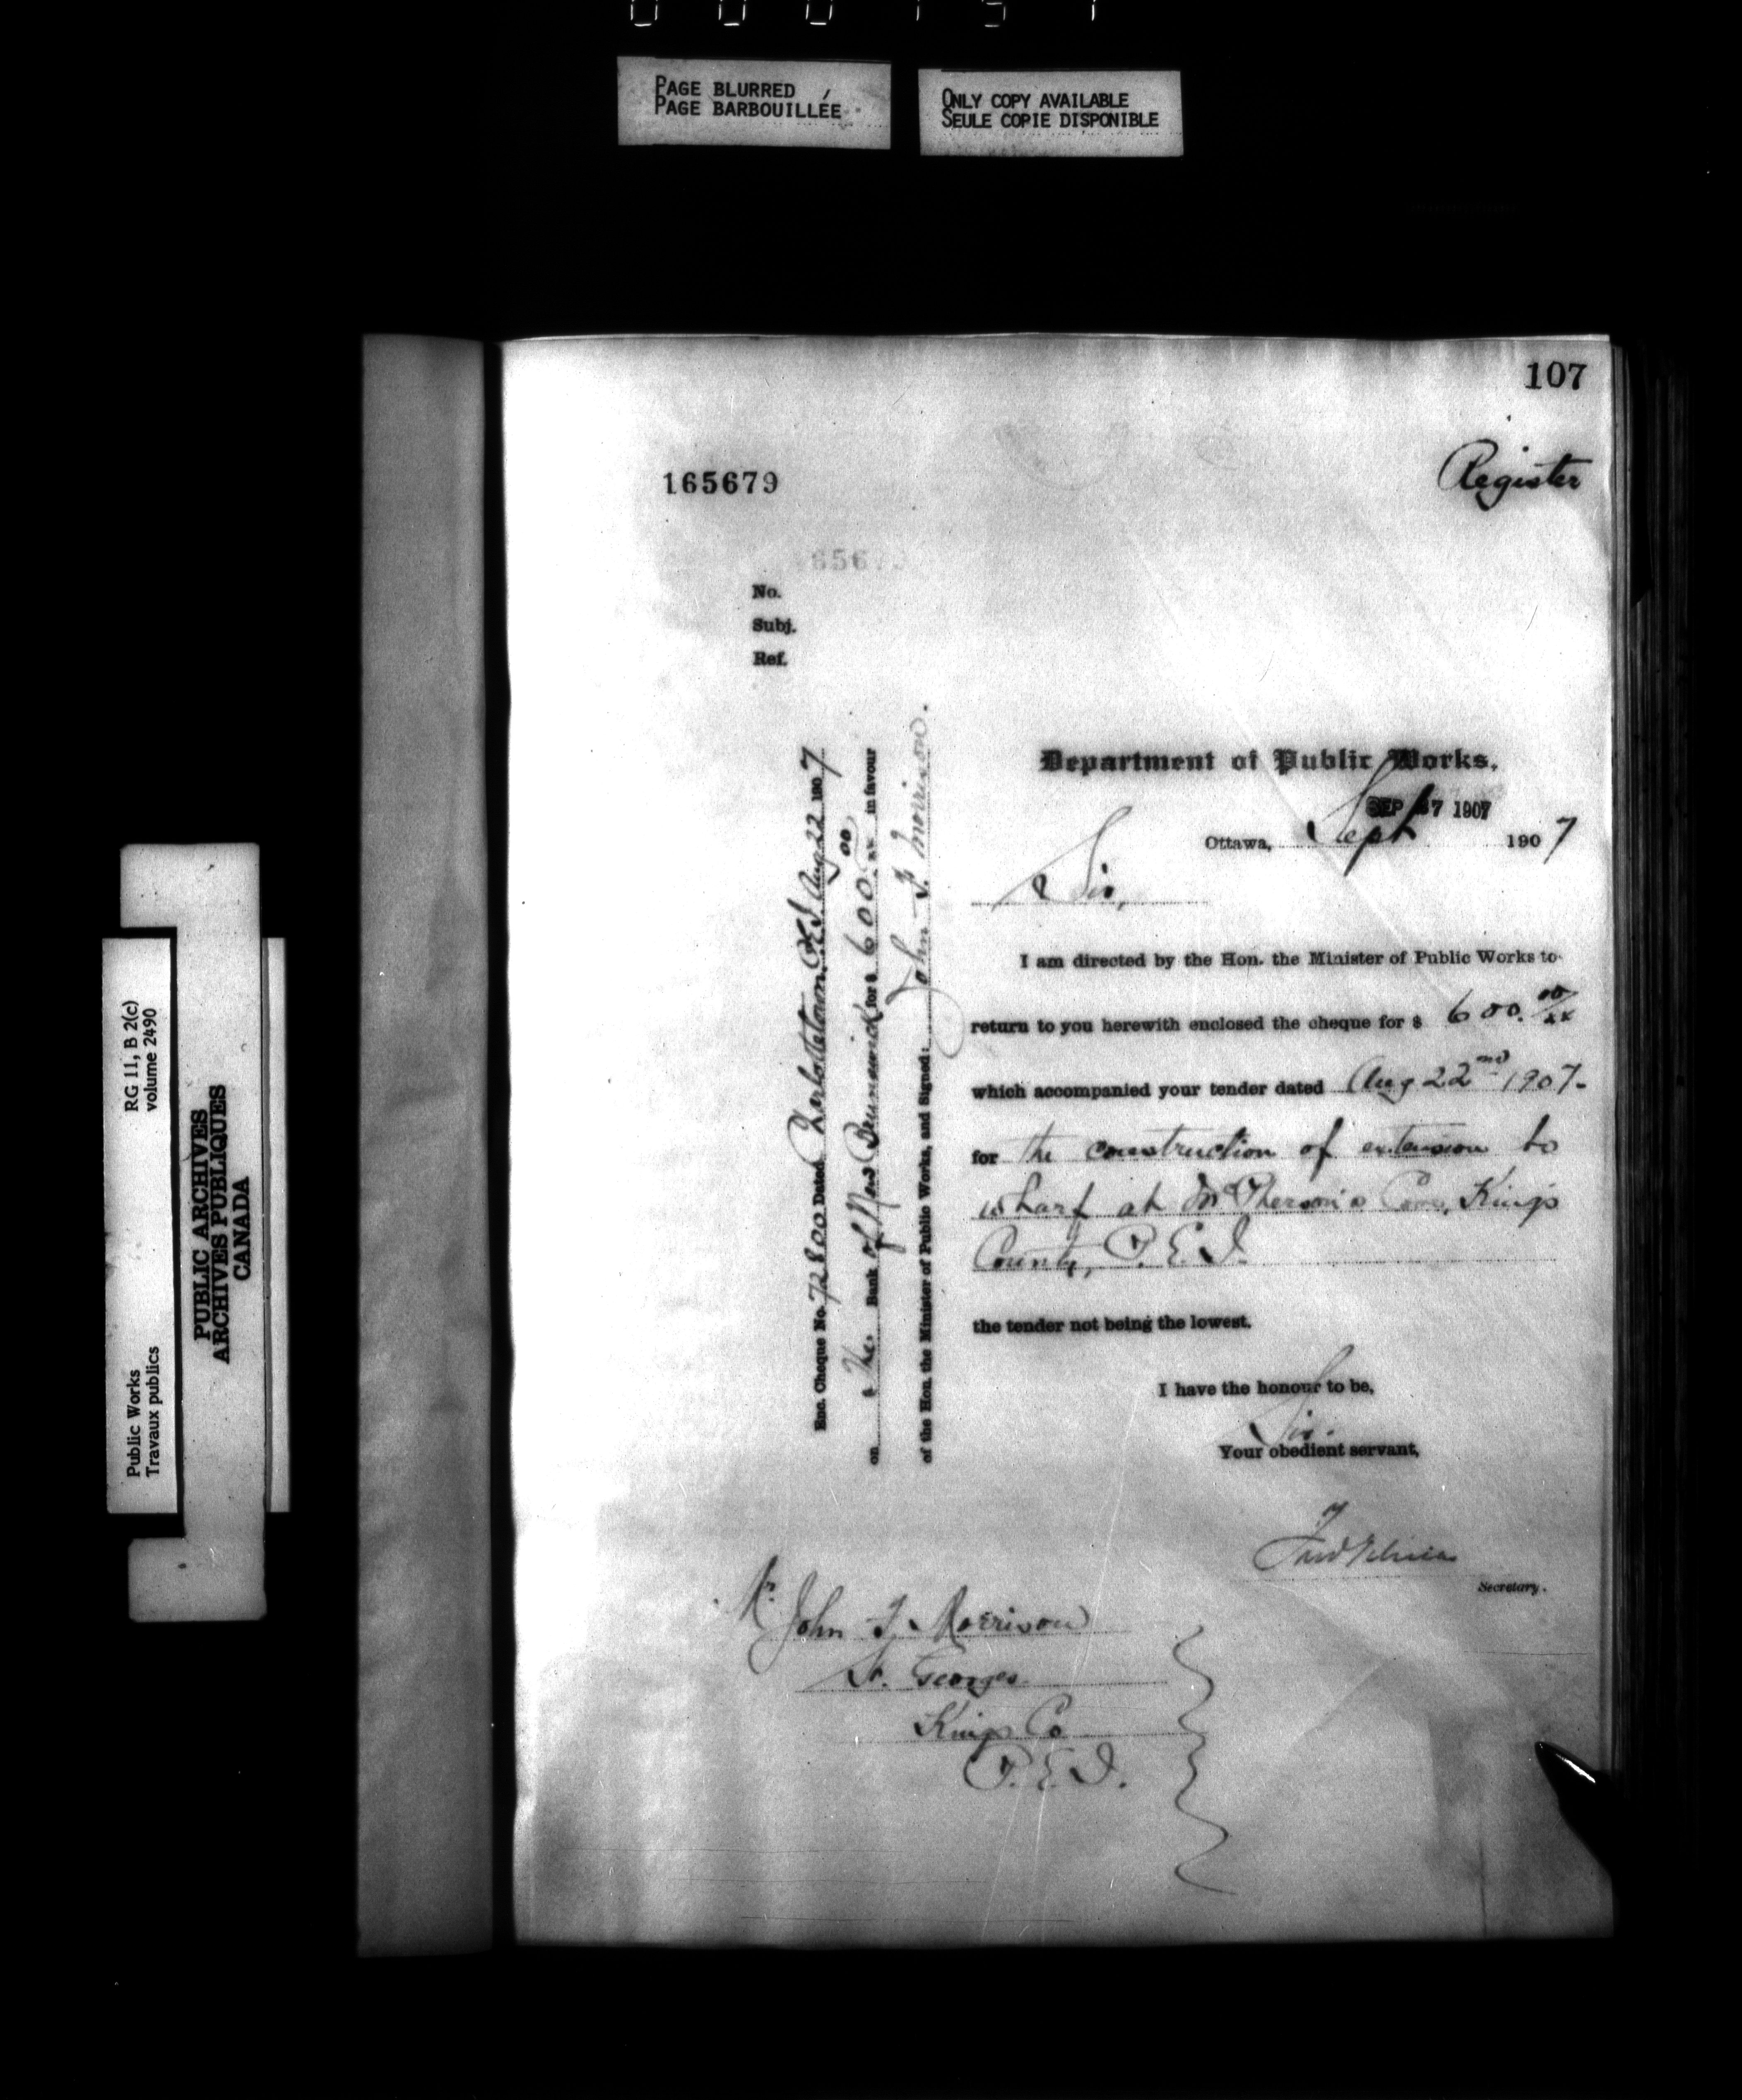 PAGE BLURRED
PAGE BARBOUILLÉE
ONLY COPY AVAILABLE
SEULE COPIE DISPONIBLE
RG 11, B 2(c)
volume 2490
Public Works
Travaux publics
PUBLIC ARCHIVES
ARCHIVES PUBLIQUES
CANADA
107
Register
165679
No.
Subj.
Ref.
Enc. Cheque No. 72800 Dated Charlottetown P.E.I. Aug 22 1907
on the Bank of New Brunswick for $ 600.00/xx in favour
of the Hon. the Minister of Public Works, and Signed: John F. Morrison.
Department of Public Works.
SEP 7 1907
Ottawa, Sept 1907
Sir,
I am directed by the Hon. the Minister of Public Works to
return to you herewith enclosed the cheque for $ 600.00/xx
which accompanied your tender dated Aug 22nd 1907-
for the construction of extension to
wharf at McPherson's Cove, Kings
County, P.E.I.
the tender not being the lowest.
I have the honour to be,
Sir.
Your obedient servant,
Fred Gélinas
Secretary.
Mr John F. Morrison
St. Georges
Kings Co
P.E.I.